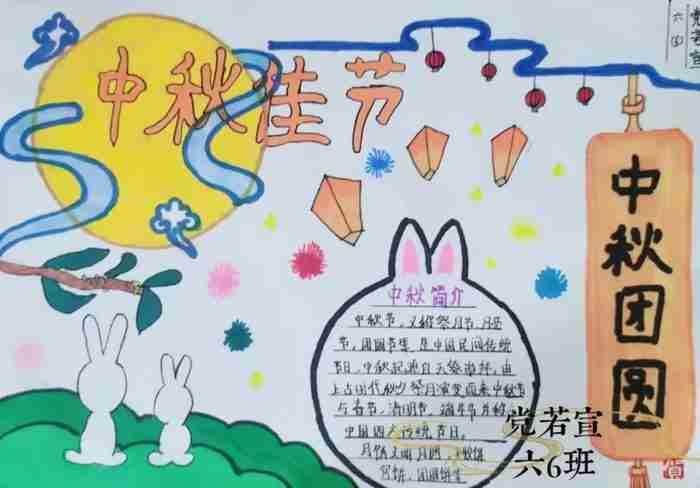 中秋佳节
党若宣
中秋团圆
中秋简介
中秋节，又称祭月节、月
节、团圆节等，是中国民间传统
节日。中秋起源自天象崇拜，由
上古时代秋夕祭月演变而来。中秋节
与春节、清明节、端午节并称
中国四大传统节日。
月饼又叫月团、
饼、团圆饼等
党若宣
六6班